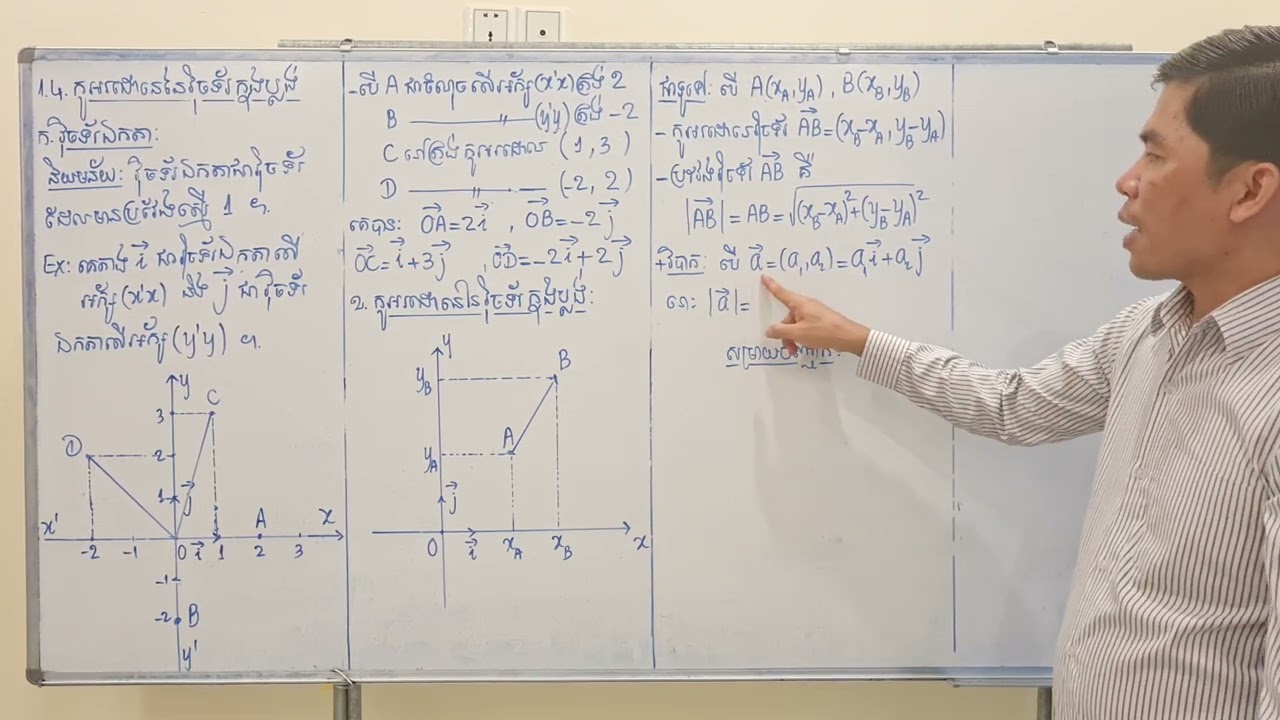 1.4. កូអរដោនេនៃវ៉ិចទ័រក្នុងប្លង់
ក. វ៉ិចទ័រឯកតា:
និយមន័យ: វ៉ិចទ័រឯកតាជាវ៉ិចទ័រ
ដែលមានប្រវែងស្មើ 1 ។
Ex: គេតាង i⃗ ជាវ៉ិចទ័រឯកតាលើ
អ័ក្ស(x'x) និង j⃗ ជាវ៉ិចទ័រ
ឯកតាលើអ័ក្ស(y'y) ។
y
3
C
D
2
1
j⃗
x'
-2
-1
0
i⃗
1
A
2
3
x
-1
-2
B
y'
-បើ A ជាចំណុចលើអ័ក្ស(x'x)ត្រង់ 2
B —— " —— (y'y) ត្រង់ -2
C នៅត្រង់កូអរដោនេ (1, 3)
D —— " —— (-2, 2)
គេបាន: OA⃗=2i⃗ , OB⃗=-2j⃗
OC⃗=i⃗+3j⃗ , OD⃗=-2i⃗+2j⃗
2. កូអរដោនេនៃវ៉ិចទ័រក្នុងប្លង់:
y
y_B
B
y_A
A
j⃗
0
i⃗
x_A
x_B
x
ជាទូទៅ: បើ A(x_A, y_A) , B(x_B, y_B)
- កូអរដោនេវ៉ិចទ័រ AB⃗=(x_B-x_A, y_B-y_A)
-ប្រវែងវ៉ិចទ័រ AB⃗ គឺ
|AB⃗| = AB = √((x_B-x_A)²+(y_B-y_A)²)
+វិបាក: បើ a⃗=(a₁, a₂)=a₁i⃗+a₂j⃗
នោះ |a⃗|=